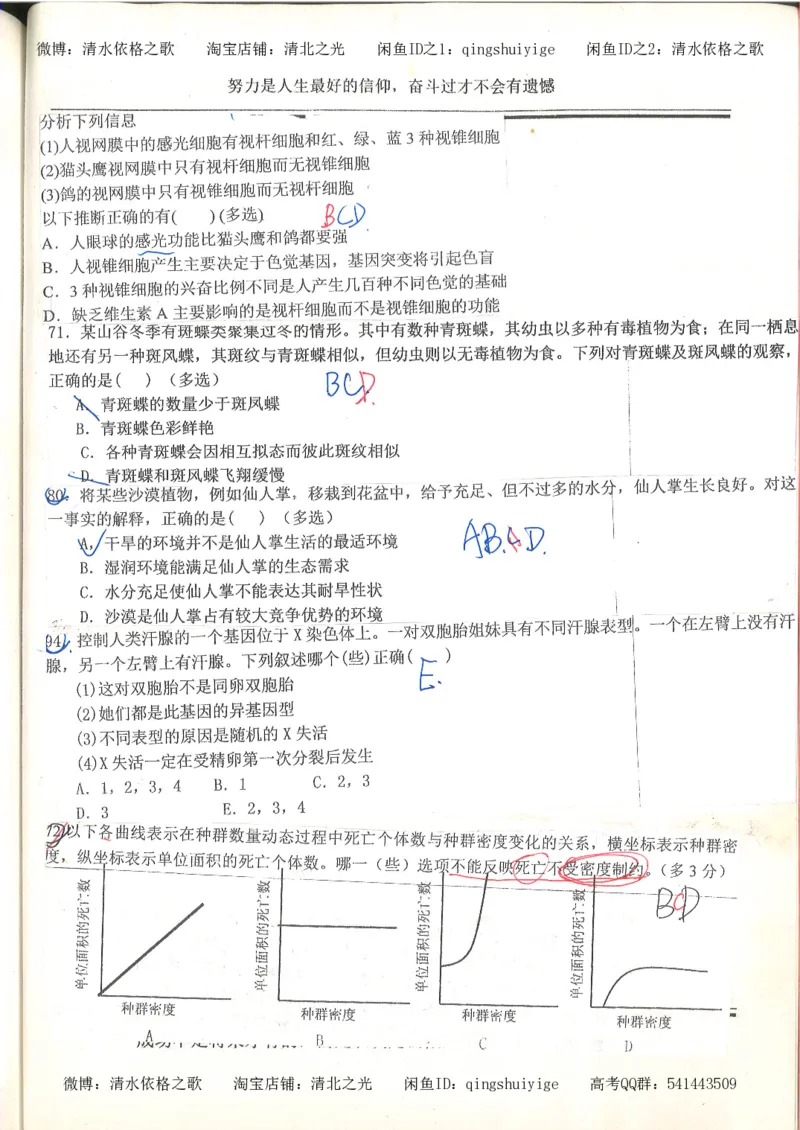 微博：清水依格之歌 淘宝店铺：清北之光 闲鱼ID之1：qingshuiyige 闲鱼ID之2：清水依格之歌
努力是人生最好的信仰，奋斗过才不会有遗憾
分析下列信息
(1)人视网膜中的感光细胞有视杆细胞和红、绿、蓝 3 种视锥细胞
(2)猫头鹰视网膜中只有视杆细胞而无视锥细胞
(3)鸽的视网膜中只有视锥细胞而无视杆细胞
以下推断正确的有( )(多选) BCD
A．人眼球的感光功能比猫头鹰和鸽都要强
B．人视锥细胞产生主要决定于色觉基因，基因突变将引起色盲
C．3 种视锥细胞的兴奋比例不同是人产生几百种不同色觉的基础
D．缺乏维生素 A 主要影响的是视杆细胞而不是视锥细胞的功能
71．某山谷冬季有斑蝶类聚集过冬的情形。其中有数种青斑蝶，其幼虫以多种有毒植物为食；在同一栖息
地还有另一种斑凤蝶，其斑纹与青斑蝶相似，但幼虫则以无毒植物为食。下列对青斑蝶及斑凤蝶的观察，
正确的是( )（多选） BCD.
A．青斑蝶的数量少于斑凤蝶
B．青斑蝶色彩鲜艳
C．各种青斑蝶会因相互拟态而彼此斑纹相似
D．青斑蝶和斑凤蝶飞翔缓慢
80．将某些沙漠植物，例如仙人掌，移栽到花盆中，给予充足、但不过多的水分，仙人掌生长良好。对这
一事实的解释，正确的是( )（多选）
A．干旱的环境并不是仙人掌生活的最适环境
B．湿润环境能满足仙人掌的生态需求
C．水分充足使仙人掌不能表达其耐旱性状
D．沙漠是仙人掌占有较大竞争优势的环境
94．控制人类汗腺的一个基因位于 X 染色体上。一对双胞胎姐妹具有不同汗腺表型。一个在左臂上没有汗
腺，另一个左臂上有汗腺。下列叙述哪个(些)正确( ) E.
(1)这对双胞胎不是同卵双胞胎
(2)她们都是此基因的异基因型
(3)不同表型的原因是随机的 X 失活
(4)X 失活一定在受精卵第一次分裂后发生
A．1，2，3，4 B．1 C．2，3
D．3 E．2，3，4
以下各曲线表示在种群数量动态过程中死亡个体数与种群密度变化的关系，横坐标表示种群密
度，纵坐标表示单位面积的死亡个体数。哪一（些）选项不能反映死亡不受密度制约。（多 3 分）
BCD
单位面积的死亡数 单位面积的死亡数 单位面积的死亡数 单位面积的死亡数
种群密度 种群密度 种群密度 种群密度
A B C D
微博：清水依格之歌 淘宝店铺：清北之光 闲鱼ID：qingshuiyige 高考QQ群：541443509